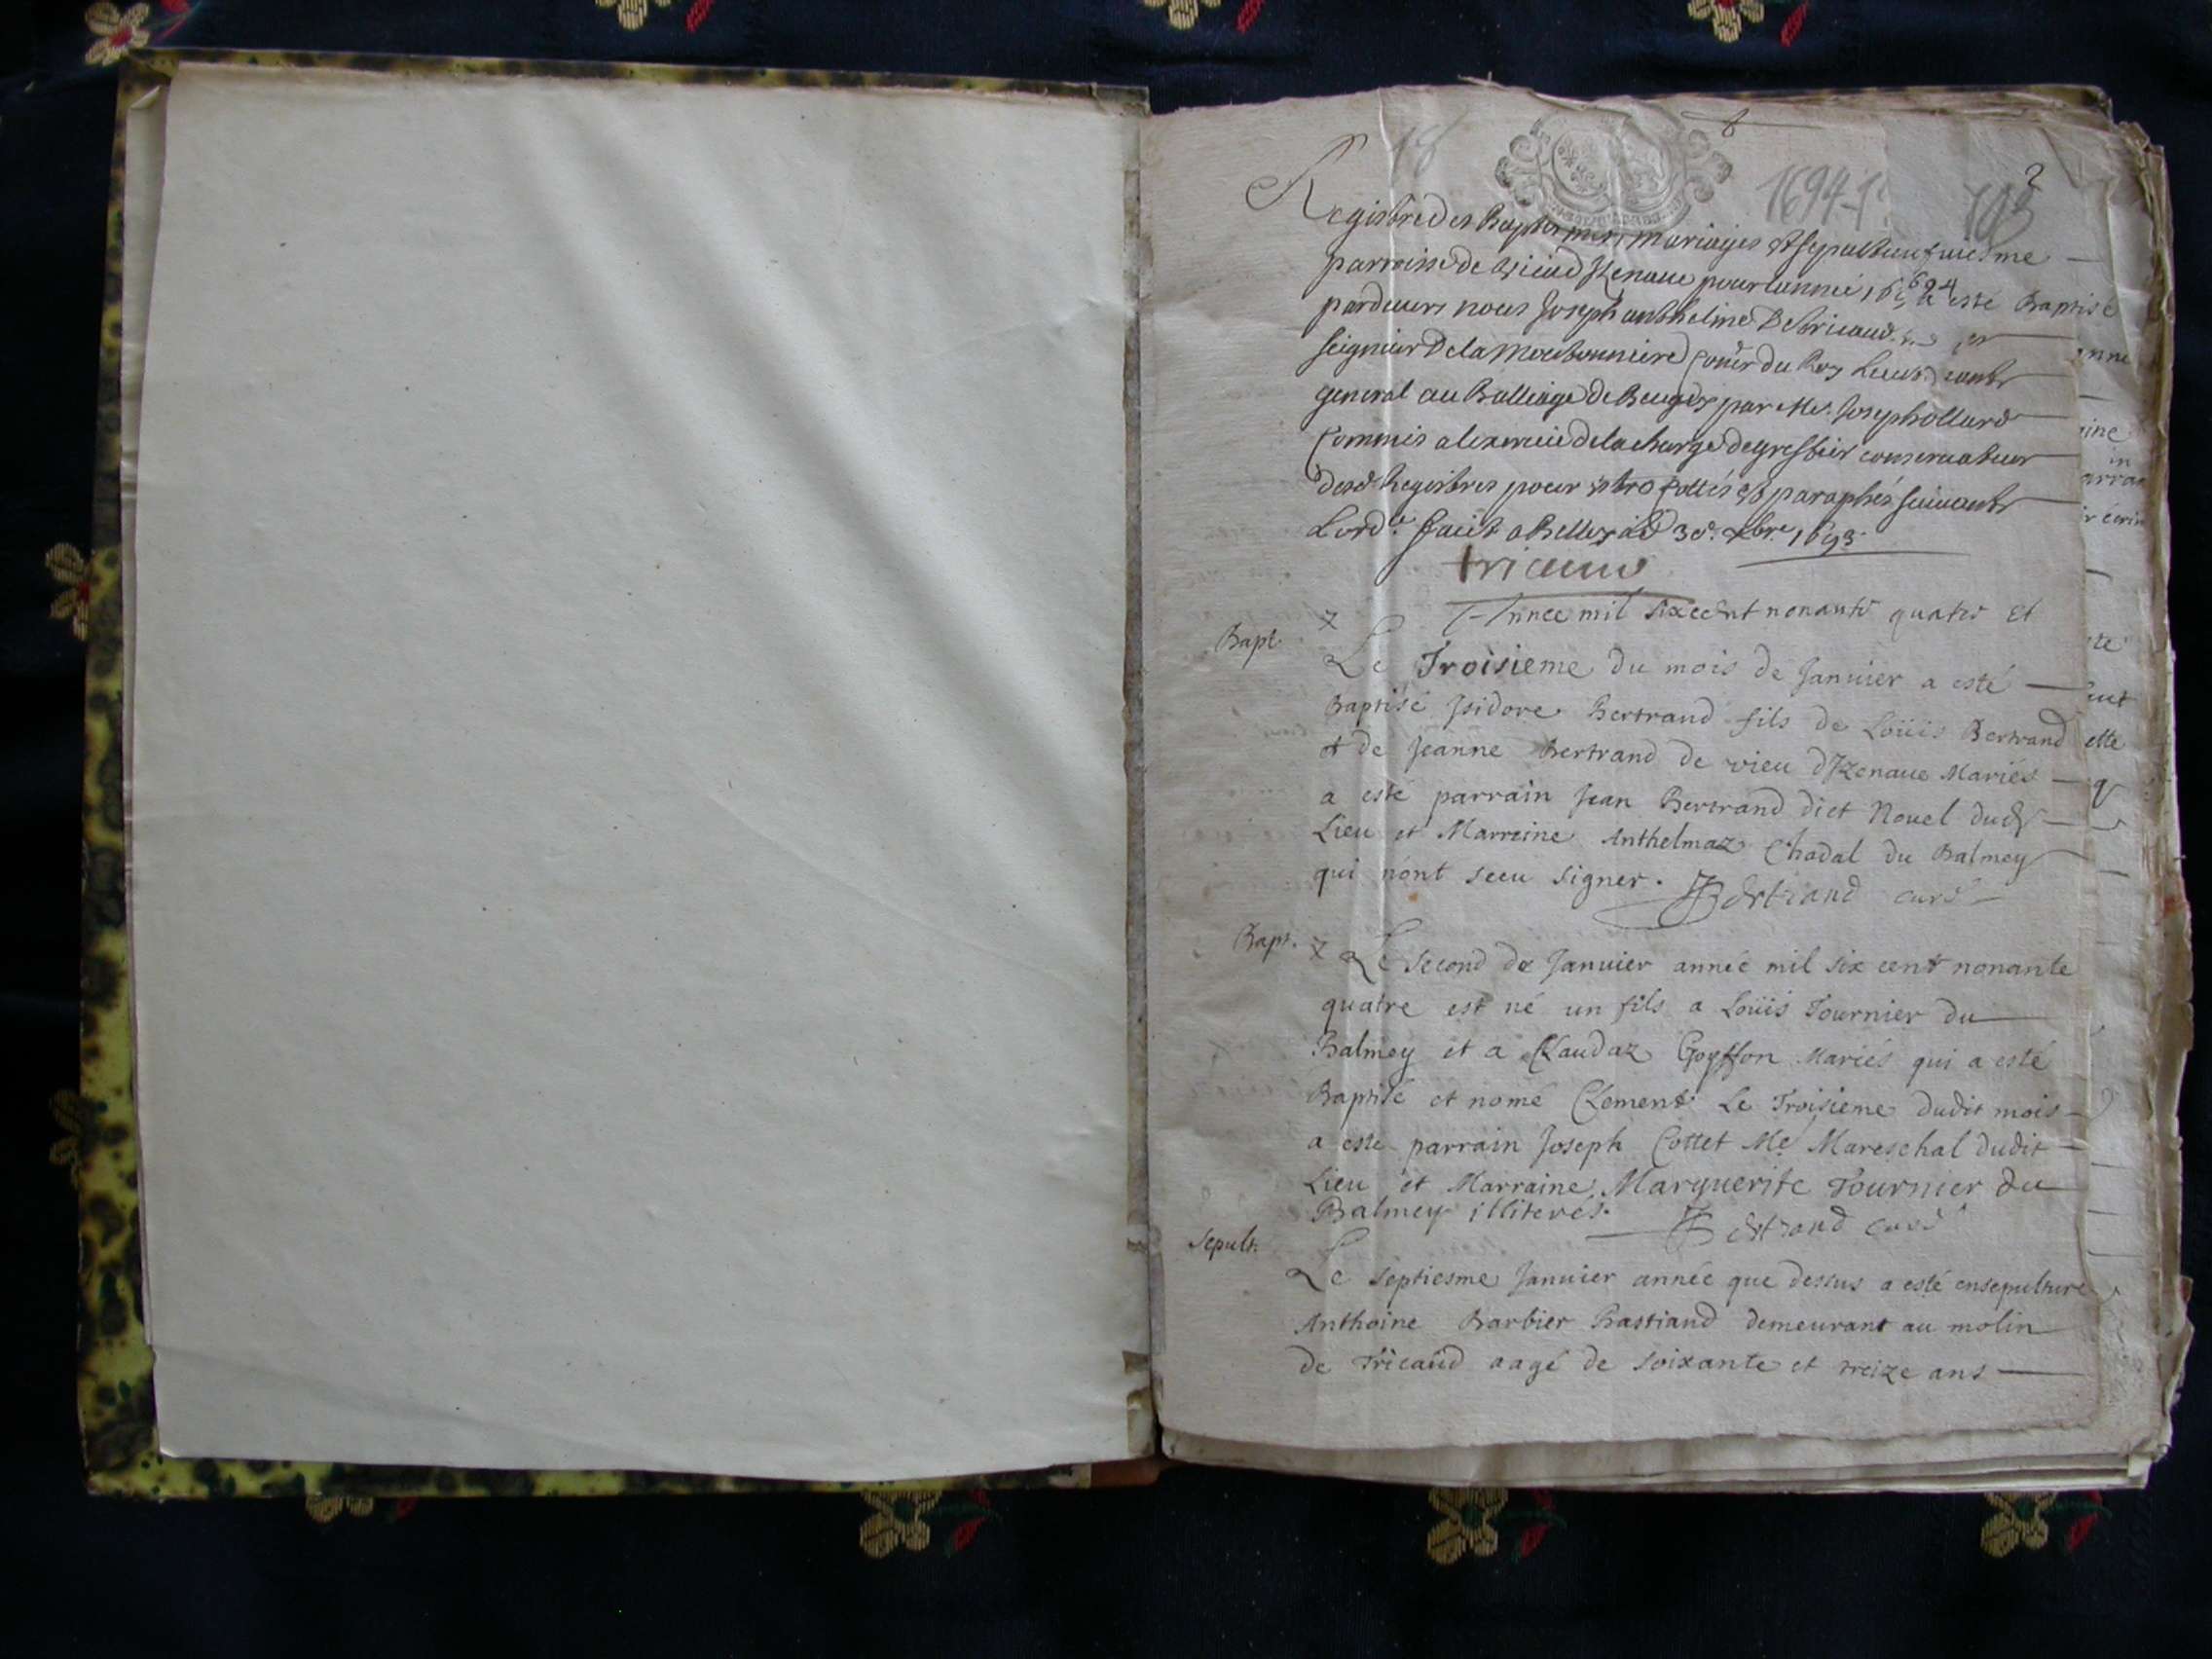 18
1694
2
Registre des Baptesmes mariages et sepultures
parroisse de Vieu d'Izenave pour l'année 1694
pardevant nous Joseph Anthelme De Tricaud
seigneur De la du Roy Lieut.
general au Balliage de Beugey par Me. Joseph
Commis a l'exercice de la charge de greffier conservateur
desd. Registres pour estre cottés et paraphés suivant
Lord.ce faict a Belley ce 30e. Xbre 1693
tricaud
Annee mil sixcent nonante quatre et
Bapt. Le Troisieme du mois de Janvier a esté
Baptisé Isidore Bertrand fils de Loüis Bertrand
et de Jeanne Bertrand de vieu d'Izenave Mariés
a esté parrain Jean Bertrand dict Novel dud.
Lieu et Marreine Anthelmaz Chadal du Balmey
qui n'ont sceu signer. Bertrand curé
Bapt. Le second de Janvier année mil six cent nonante
quatre est né un fils a Loüis Tournier du
Balmey et a Claudaz Goyffon Mariés qui a esté
Baptisé et nomé Clement Le Troisieme dudit mois
a este parrain Joseph Cottet Me. Mareschal dudit
Lieu et Marraine Marguerite Tournier du
Balmey illiterés. Bertrand curé
Sepult. Le septiesme Janvier année que dessus a esté ensepulture
Anthoine Barbier Bastiand demeurant au molin
de Tricaud aagé de soixante et treize ans